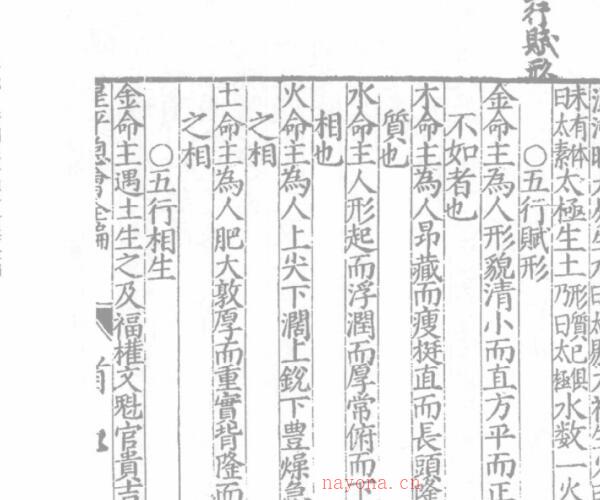 行賦形
未有体
曰太素太極生土形質已俱
乃曰太極水数一火
○五行賦形
金命主為人形貌清小而直方平而正
不如者也
木命主為人昻藏而瘦挺直而長頭隆
質也
水命主人形起而浮潤而厚常俯而下
相也
火命主為人上尖下濶上銳下豊燥急
之相
土命主為人肥大敦厚而重實背隆而
之相
○五行相生
金命主遇土生之及福權文魁官貴吉
星平總會全編 首
nayona.cn